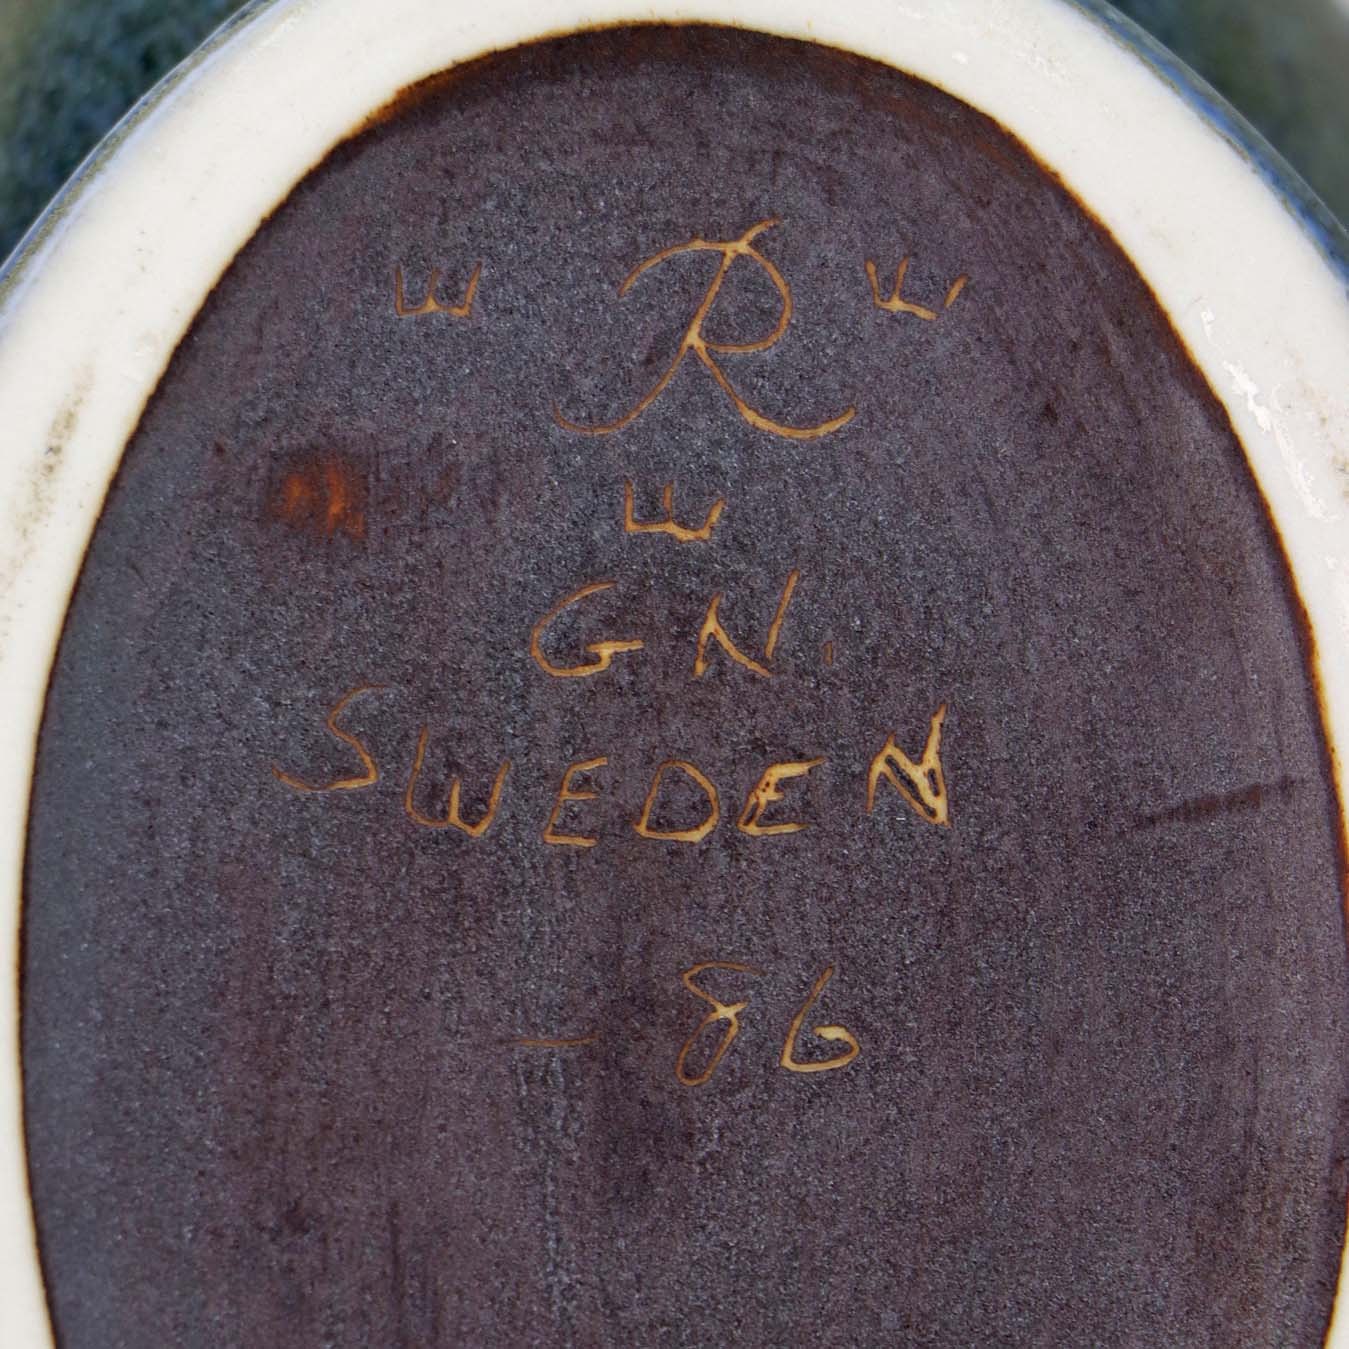 R
GN.
SWEDEN
- 86